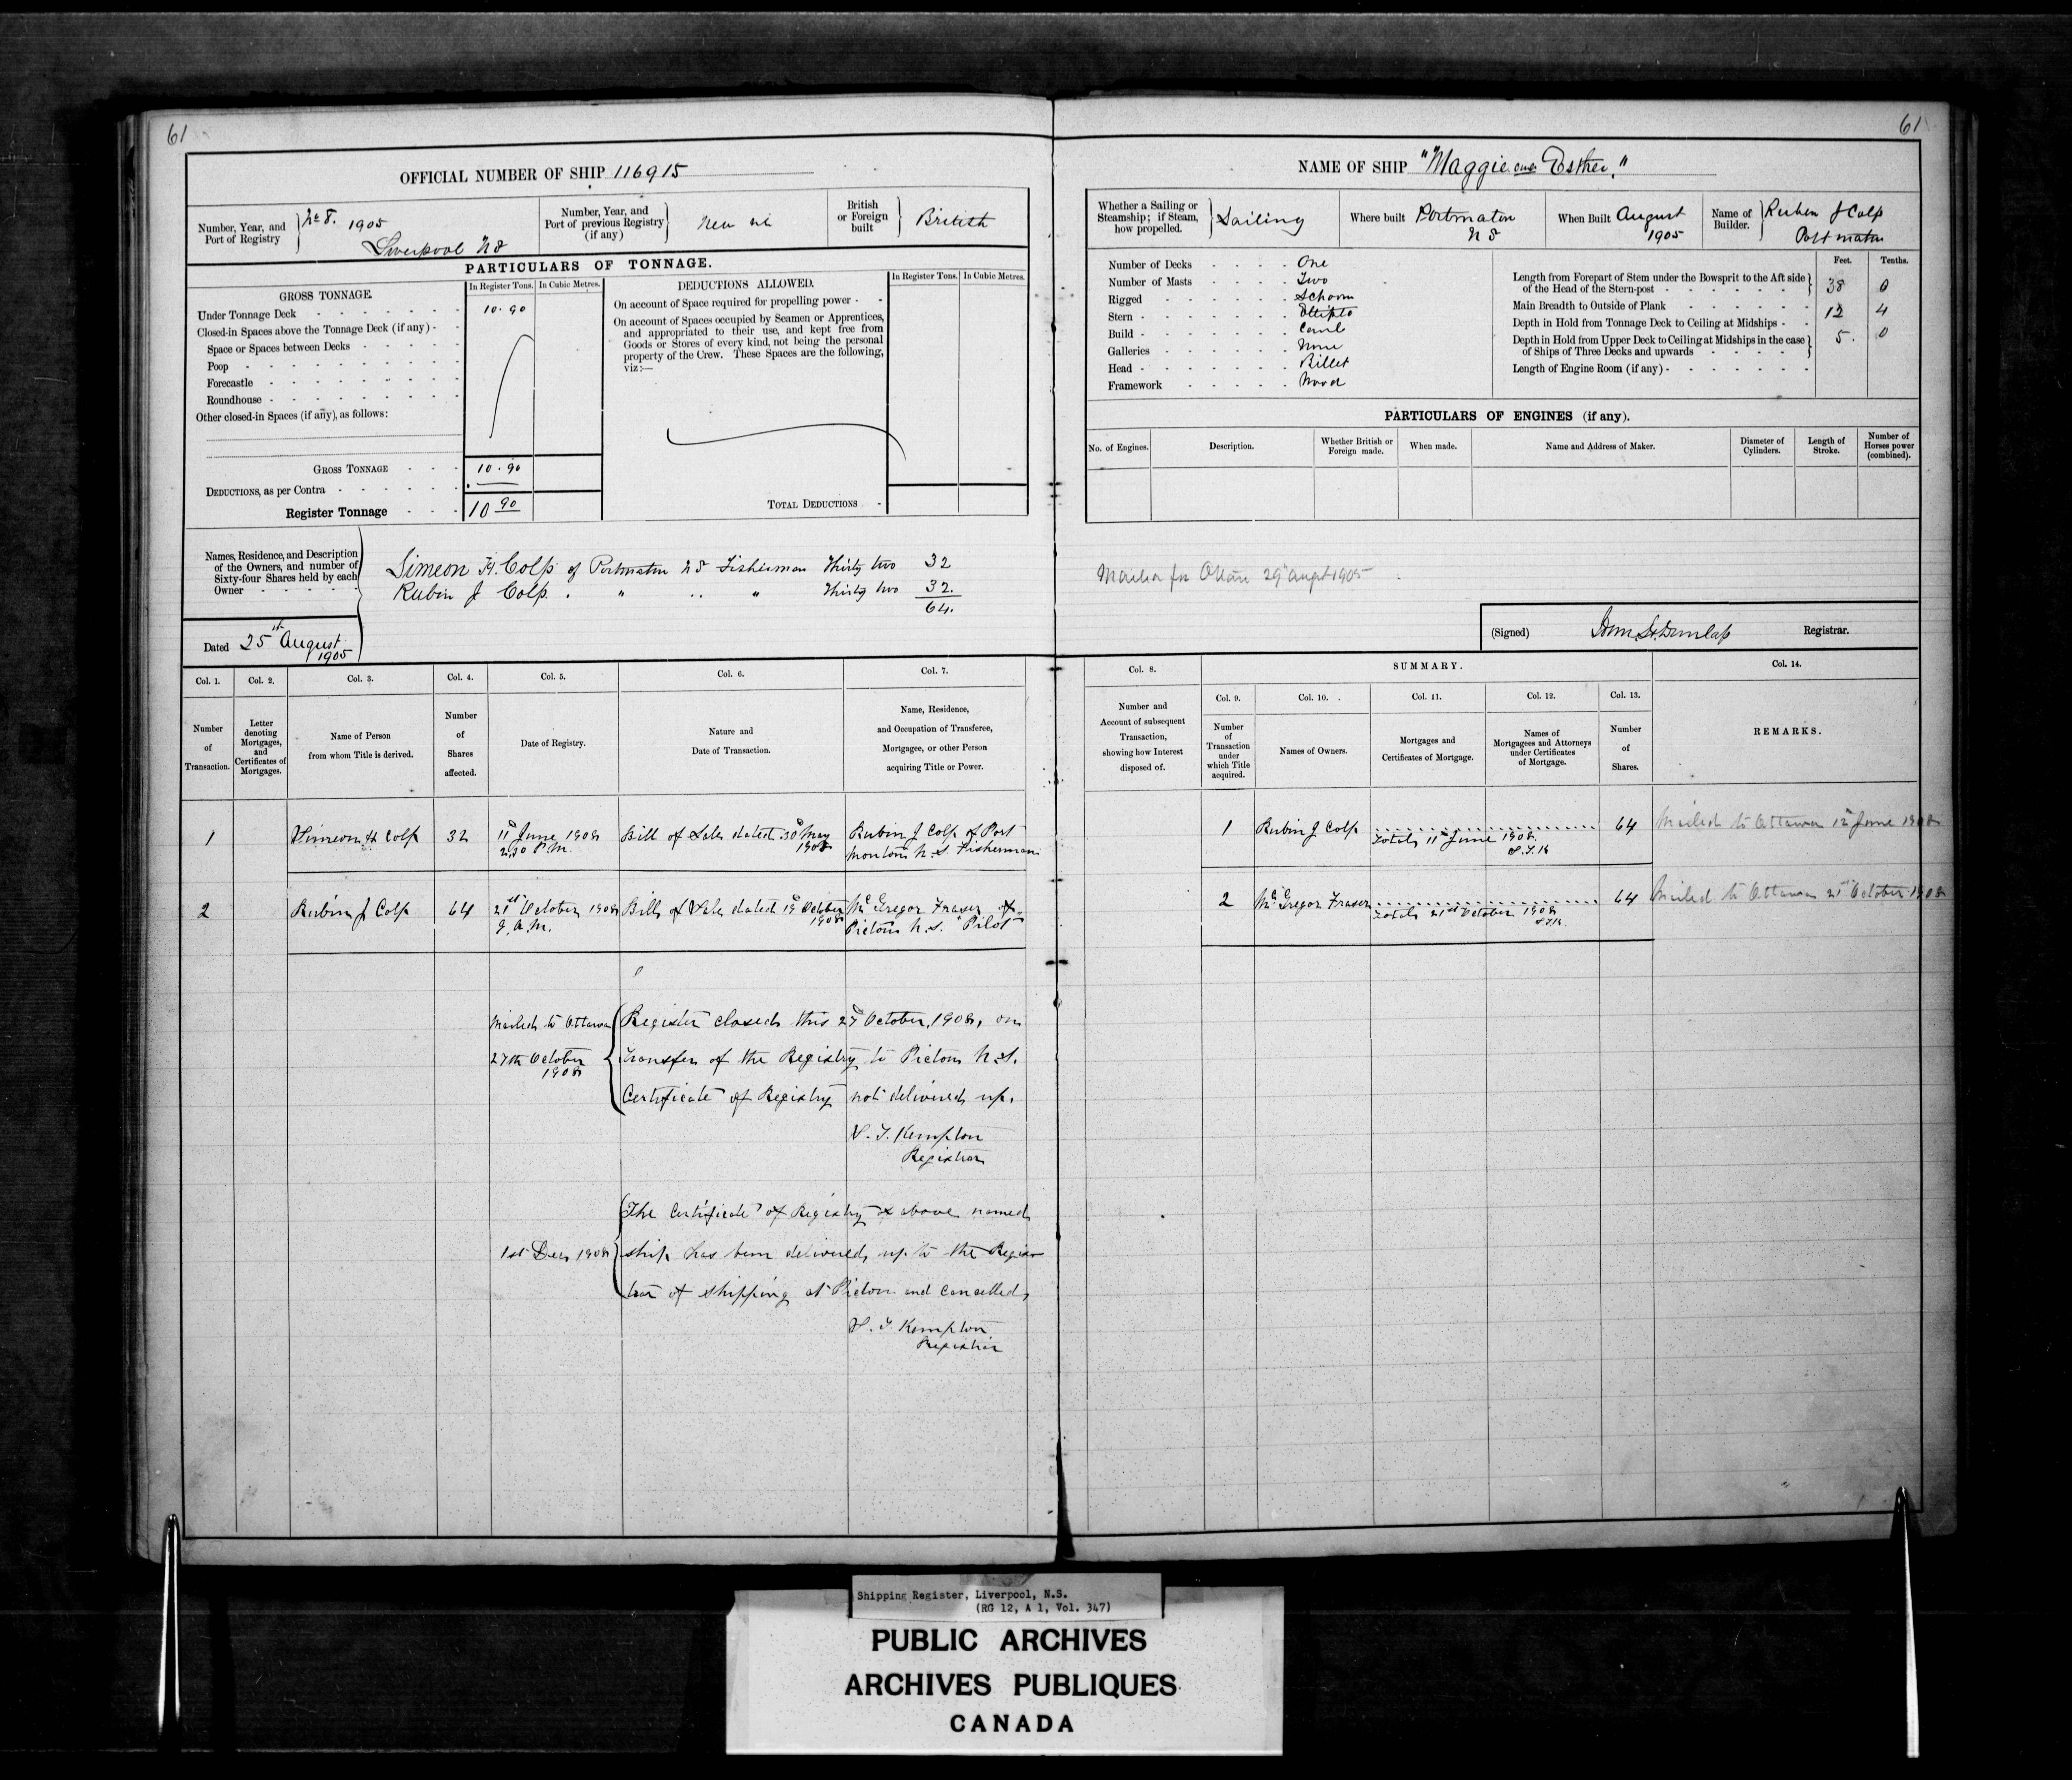 61
OFFICIAL NUMBER OF SHIP 116915
Number, Year, and Port of Registry
No 8. 1905
Liverpool N S
Number, Year, and Port of previous Registry (if any)
New
British or Foreign built
British
PARTICULARS OF TONNAGE.
GROSS TONNAGE.
In Register Tons.
In Cubic Metres.
Under Tonnage Deck
10.90
Closed-in Spaces above the Tonnage Deck (if any)
Space or Spaces between Decks
Poop
Forecastle
Roundhouse
Other closed-in Spaces (if any), as follows:
GROSS TONNAGE
10.90
DEDUCTIONS, as per Contra
Register Tonnage
10 90
DEDUCTIONS ALLOWED.
In Register Tons.
In Cubic Metres.
On account of Space required for propelling power
On account of Spaces occupied by Seamen or Apprentices,
and appropriated to their use, and kept free from
Goods or Stores of every kind, not being the personal
property of the Crew. These Spaces are the following,
viz:—
TOTAL DEDUCTIONS
Names, Residence, and Description
of the Owners, and number of
Sixty-four Shares held by each
Owner
Simeon H. Colp of Portmaton N S Fisherman Thirty two 32
Rubin J Colp " " " Thirty two 32.
64.
Dated 25th August 1905
Col. 1.
Number of Transaction.
Col. 2.
Letter denoting Mortgages, and Certificates of Mortgages.
Col. 3.
Name of Person from whom Title is derived.
Col. 4.
Number of Shares affected.
Col. 5.
Date of Registry.
Col. 6.
Nature and Date of Transaction.
Col. 7.
Name, Residence, and Occupation of Transferee, Mortgagee, or other Person acquiring Title or Power.
1
Simeon H Colp
32
11th June 1908
2.30 P.M.
Bill of Sale dated 30th May
1908
Rubin J Colp of Port
Montoin N.S. Fisherman
2
Rubin J Colp
64
21st October 1908
9. A.M.
Bill of Sale dated 19th October
1908
McGregor Fraser of
Pictou N.S. "Pilot"
Mailed to Ottawa
27th October
1908
Register closed this 27th October, 1908, on
Transfer of the Registry to Pictou N.S.
Certificate of Registry not delivered up.
S. F. Kempton
Registrar
1st Dec 1908
The Certificate of Registry of above named
ship has been delivered up to the Regis-
trar of shipping at Pictou and cancelled,
S. F. Kempton
Registrar
61
NAME OF SHIP "Maggie and Esther."
Whether a Sailing or Steamship; if Steam, how propelled.
Sailing
Where built
Portmaton
N S
When Built
August
1905
Name of Builder.
Reuben J Colp
Portmaton
Number of Decks One
Number of Masts Two
Rigged Schoon
Stern
Build Carvel
Galleries None
Head Billet
Framework Wood
Feet.
Tenths.
Length from Forepart of Stem under the Bowsprit to the Aft side
of the Head of the Stern-post
38 0
Main Breadth to Outside of Plank
12 4
Depth in Hold from Tonnage Deck to Ceiling at Midships
5. 0
Depth in Hold from Upper Deck to Ceiling at Midships in the case
of Ships of Three Decks and upwards
Length of Engine Room (if any)
PARTICULARS OF ENGINES (if any).
No. of Engines.
Description.
Whether British or Foreign made.
When made.
Name and Address of Maker.
Diameter of Cylinders.
Length of Stroke.
Number of Horses power (combined).
29th Augt 1905
(Signed) Dunlap Registrar.
Col. 8.
Number and Account of subsequent Transaction, showing how Interest disposed of.
SUMMARY.
Col. 9.
Number of Transaction under which Title acquired.
Col. 10.
Names of Owners.
Col. 11.
Mortgages and Certificates of Mortgage.
Col. 12.
Names of Mortgagees and Attorneys under Certificates of Mortgage.
Col. 13.
Number of Shares.
Col. 14.
REMARKS.
1
Rubin J Colp
Total, 11th June 1908.
S.F.K
64
Mailed to Ottawa 12th June 1908
2
McGregor Fraser
Total, 21st October 1908
S.F.K.
64
Mailed to Ottawa 21st October 1908
Shipping Register, Liverpool, N.S.
(RG 12, A 1, Vol. 347)
PUBLIC ARCHIVES
ARCHIVES PUBLIQUES
CANADA